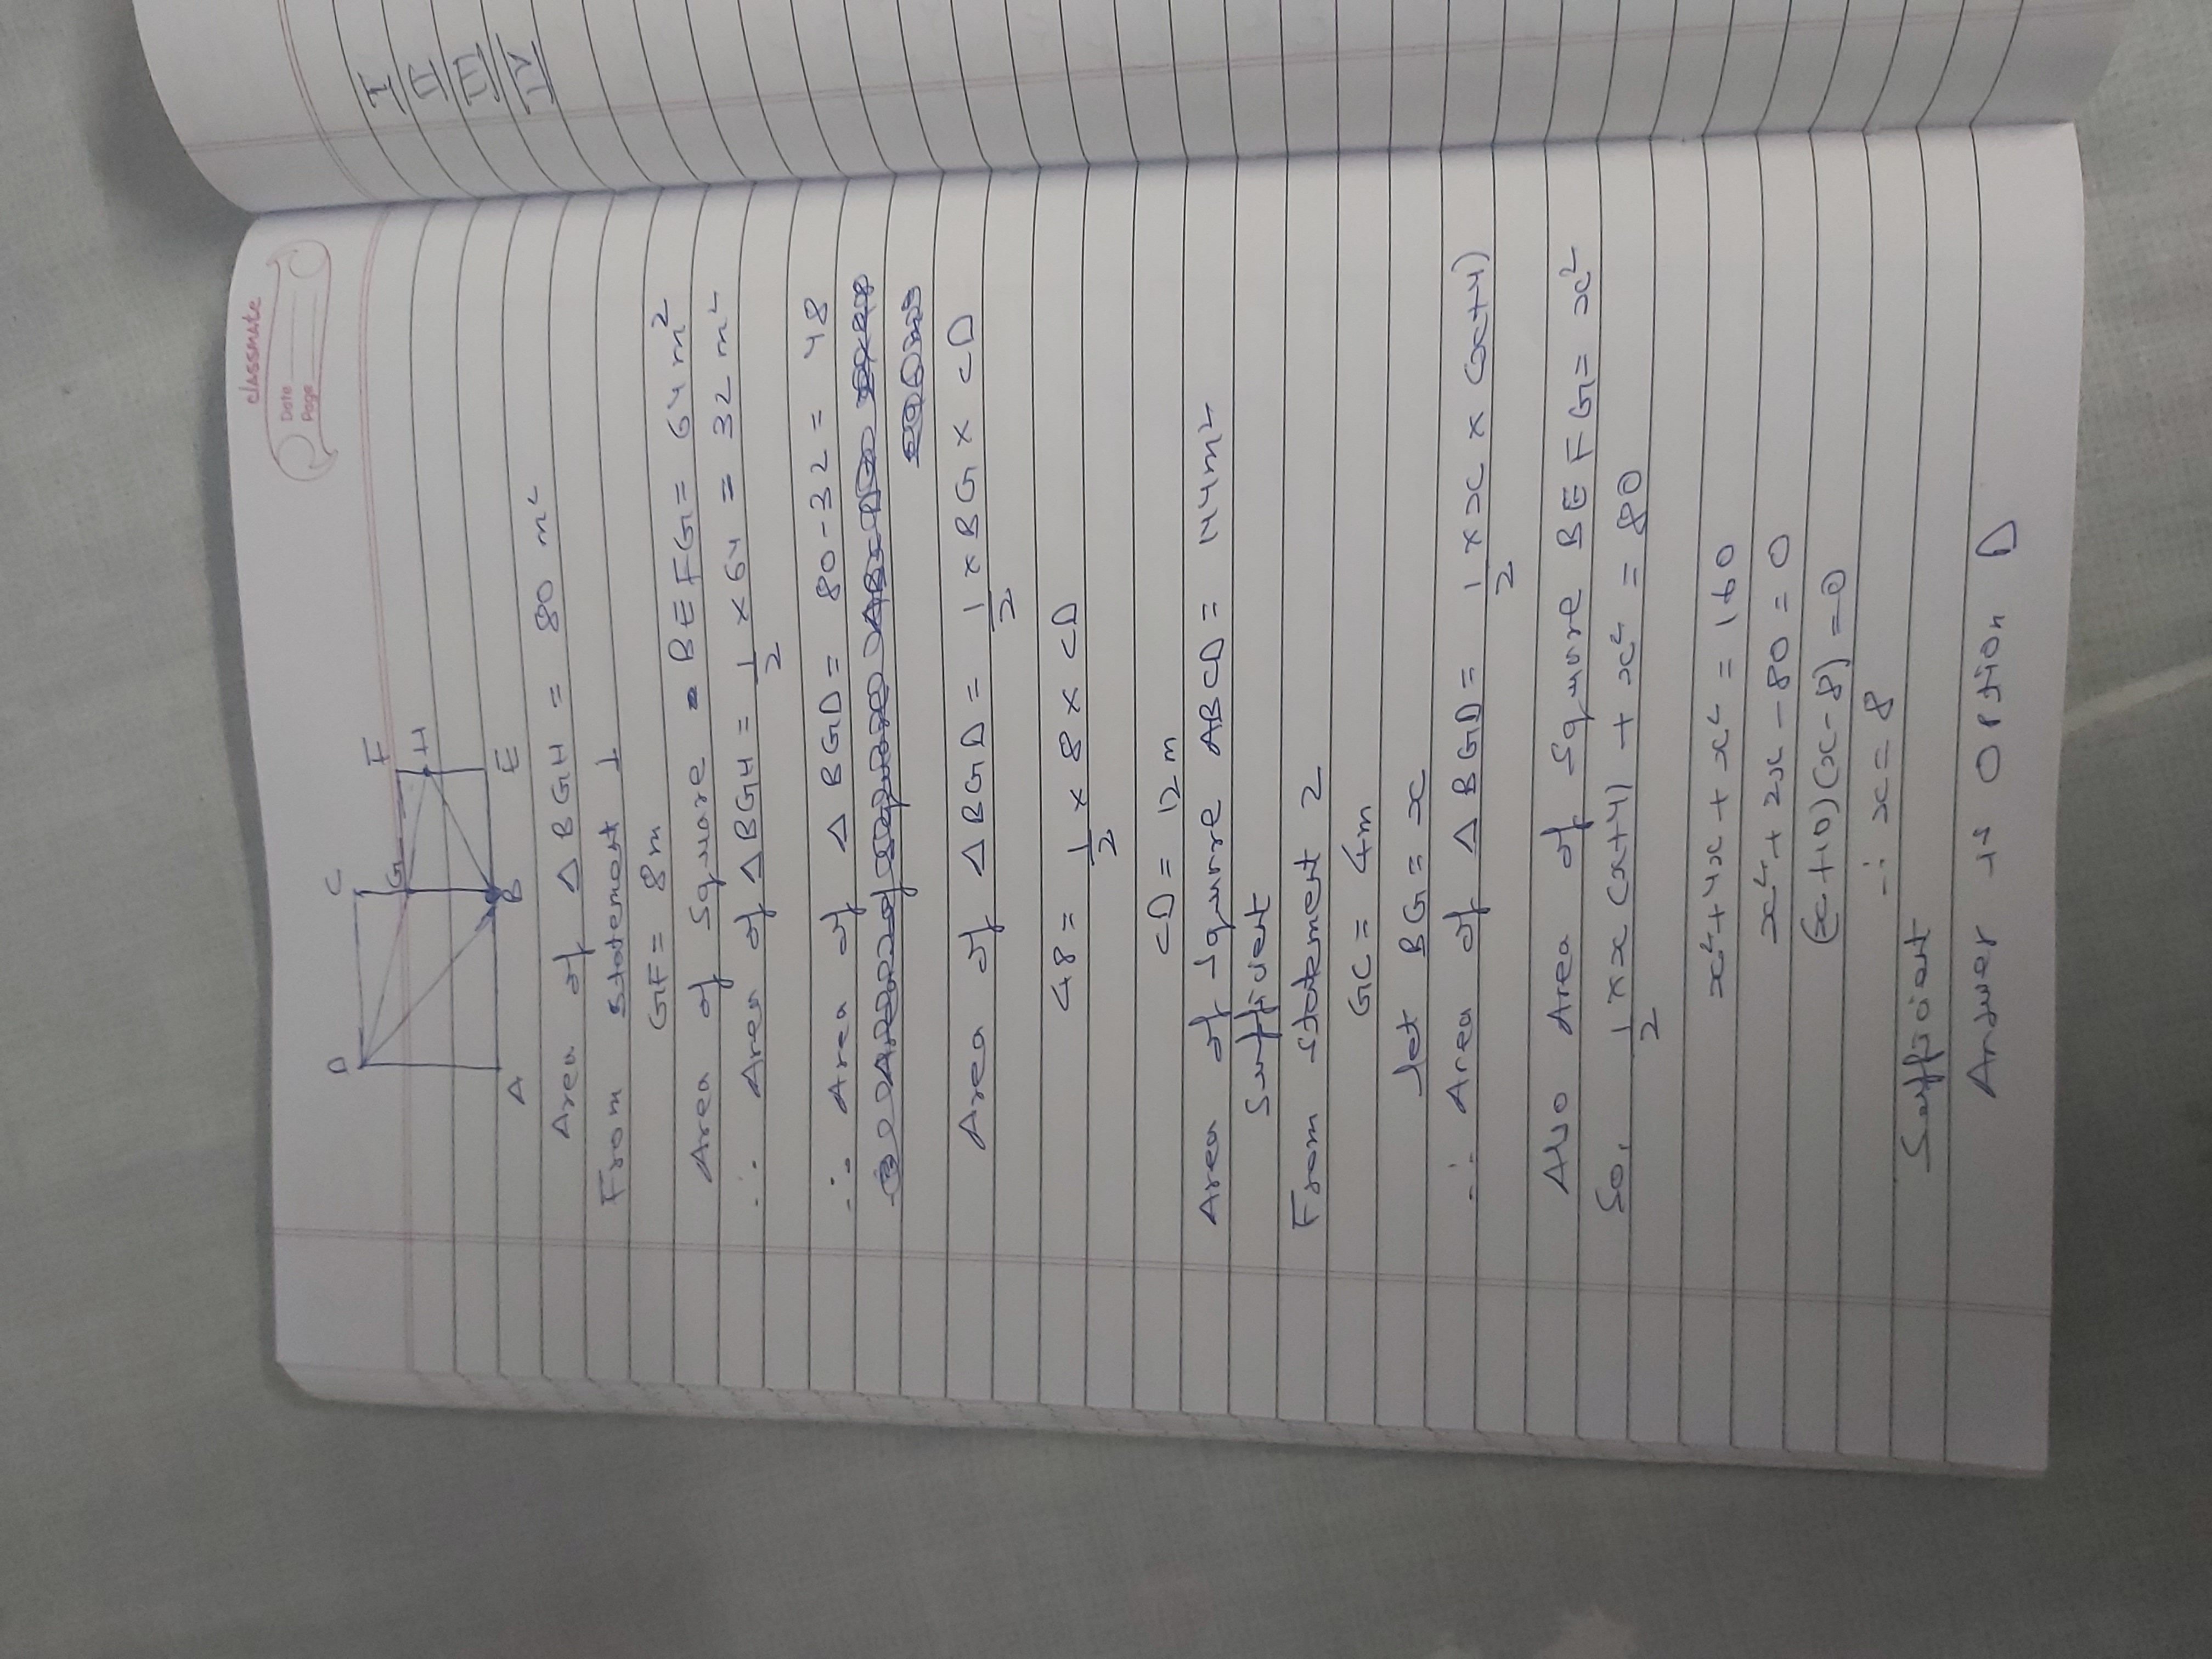 I
II
III
IV
classmate
Date
Page
D
C
F
G
H
A
B
E
Area of Δ BGH = 80 m²
From Statement 1
GF = 8m
Area of square BEFG = 64 m²
∴ Area of Δ BGH = 1/2 × 64 = 32 m²
∴ Area of Δ BGD = 80-32 = 48
Area of Δ BGD = 1/2 × BG × CD
48 = 1/2 × 8 × CD
CD = 12 m
Area of square ABCD = 144m²
Sufficient
From statement 2
GC = 4m
let BG = x
∴ Area of Δ BGD = 1/2 × x × (x+4)
Also Area of Square BEFG = x²
So, 1/2 × x (x+4) + x² = 80
x²+4x + x² = 160
x²+2x-80=0
(x+10)(x-8)=0
∴ x=8
Sufficient
Answer is Option D